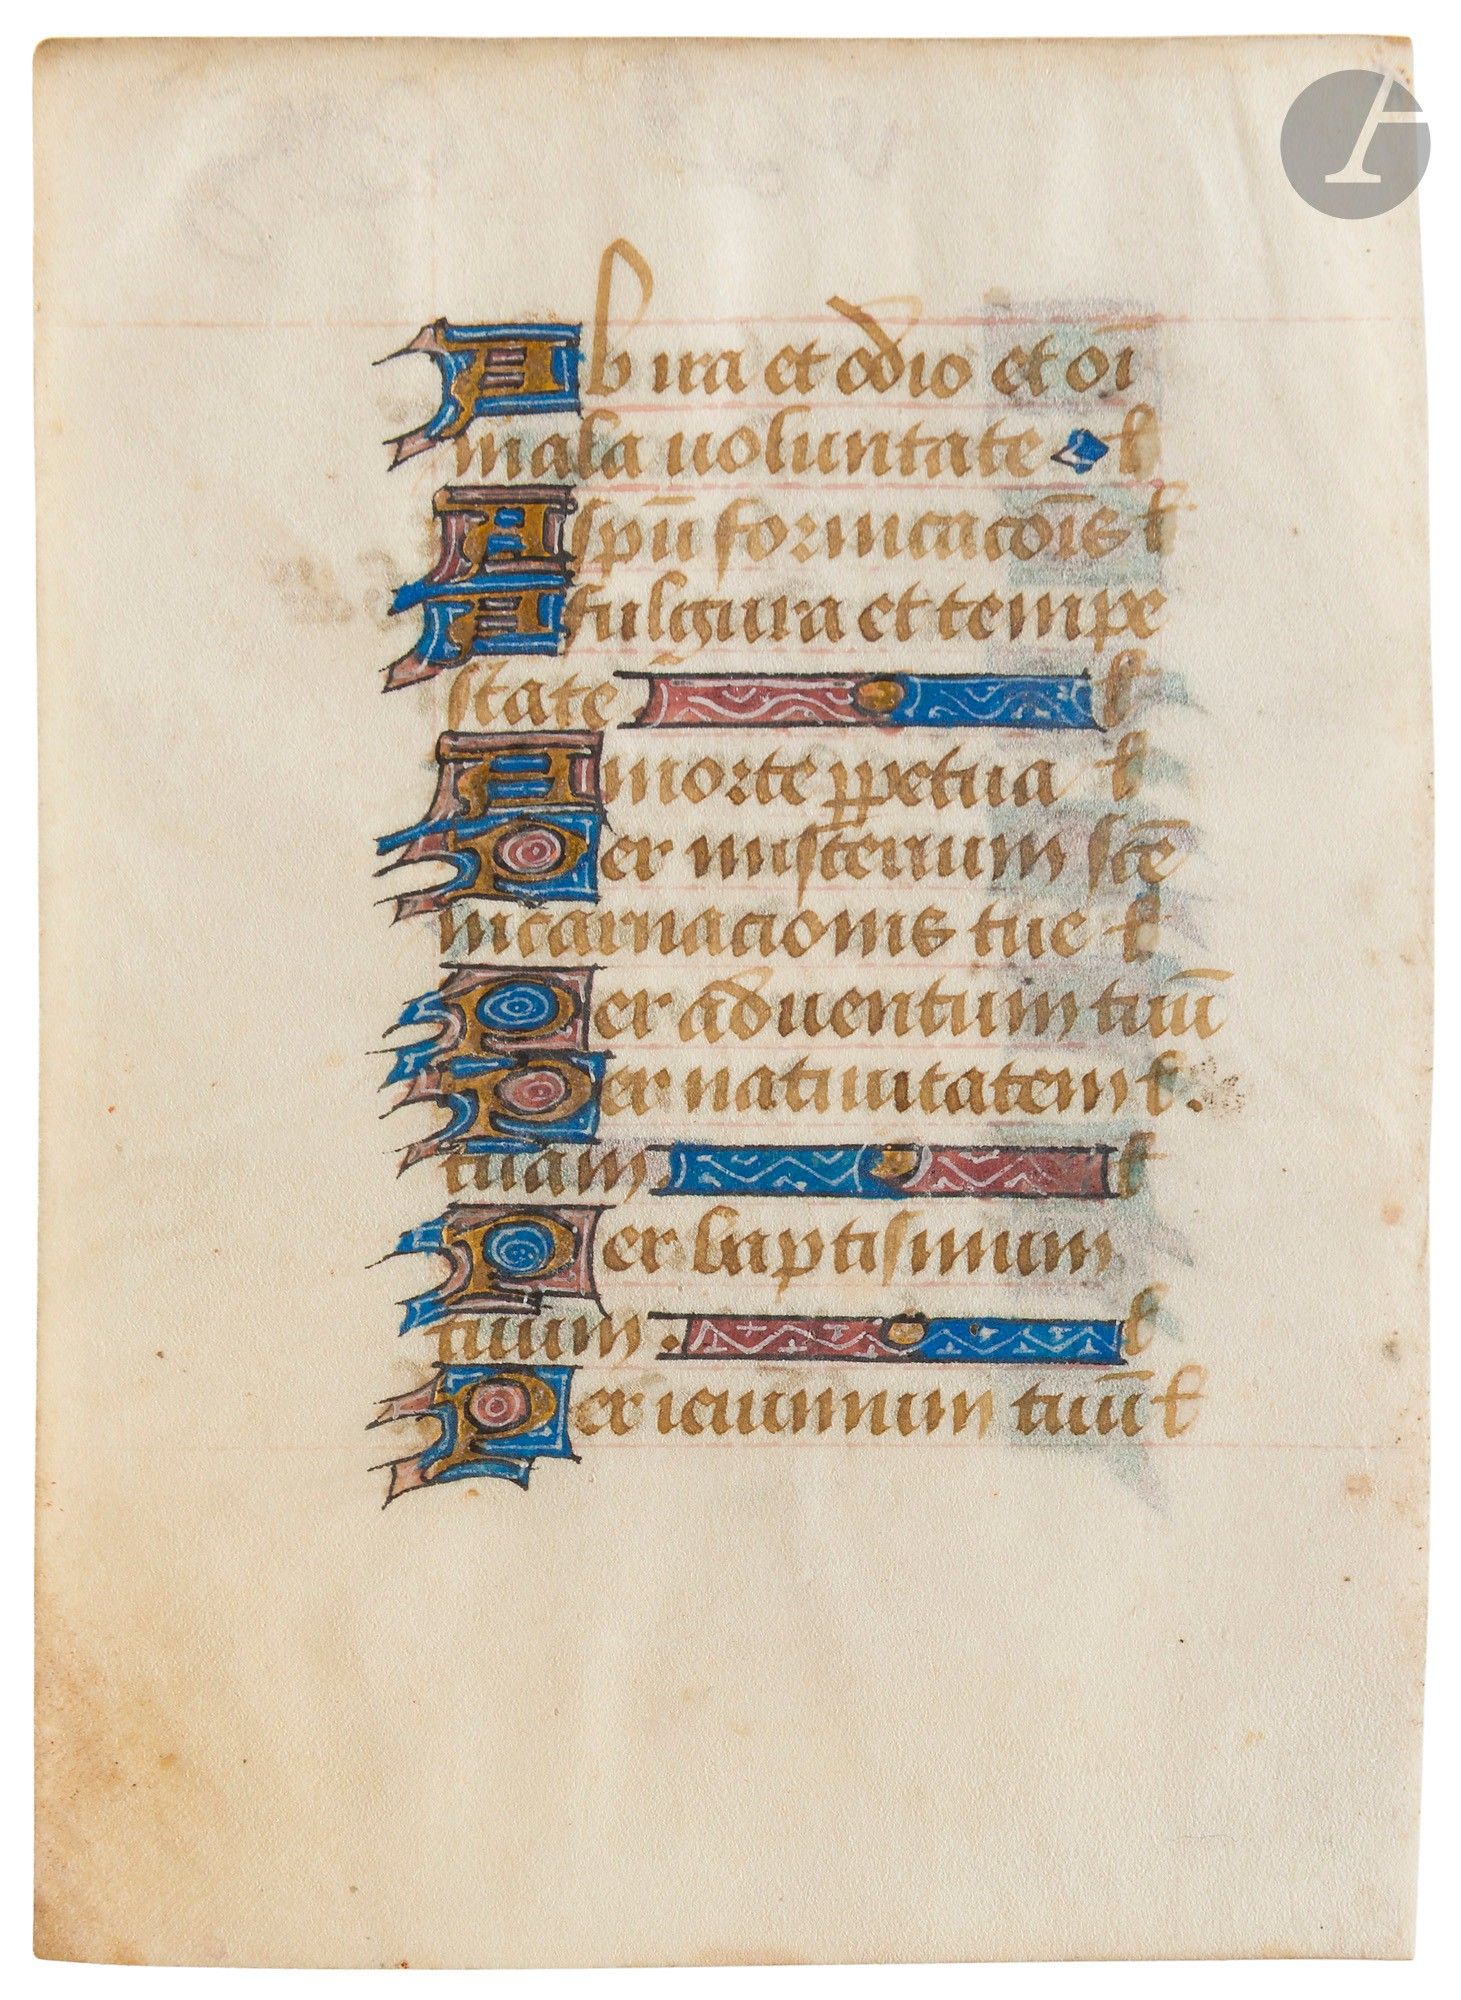 Ab ira et odio et oī
mala uoluntate ł
A spū fornicacōis ł
A fulgura et tempe
state ł
A morte ꝑpetua ł
Per misterium scē
incarnacionis tue ł
Per aduentum tuū
Per natiuitatem ł.
tuam ł
Per baptismum
tuum. ł
Per ieiunium tuū ł